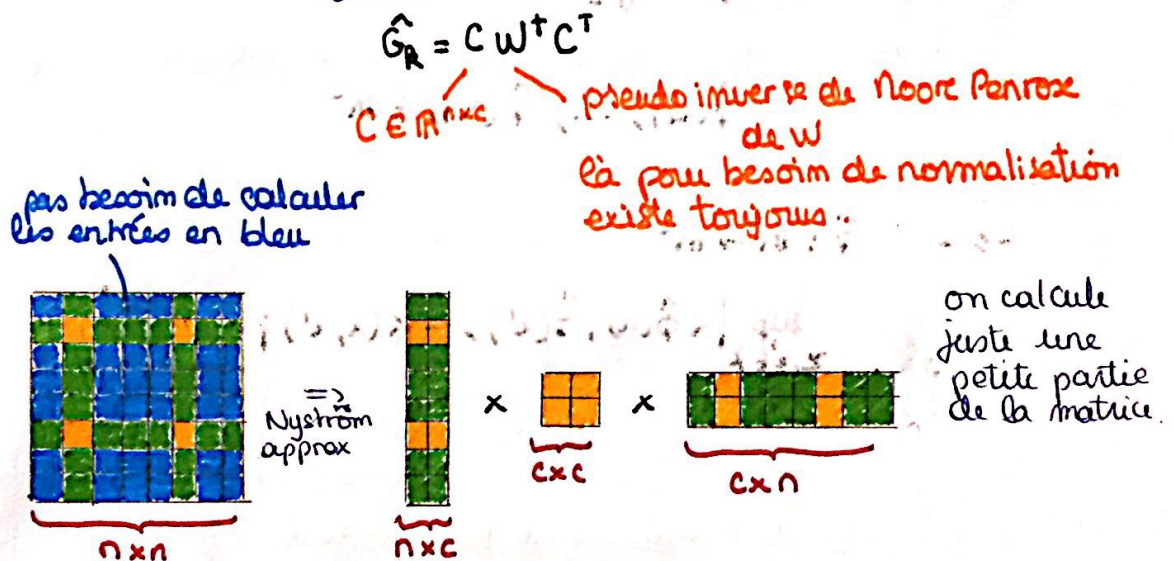 Ĝ_R = C W† Cᵀ
C ∈ ℝⁿˣᶜ
pseudo inverse de Moore Penrose
de W
là pour besoin de normalisation
existe toujours.
pas besoin de calculer
les entrées en bleu
=>
Nyström
approx
×
×
on calcule
juste une
petite partie
de la matrice.
n×n
n×c
c×c
c×n